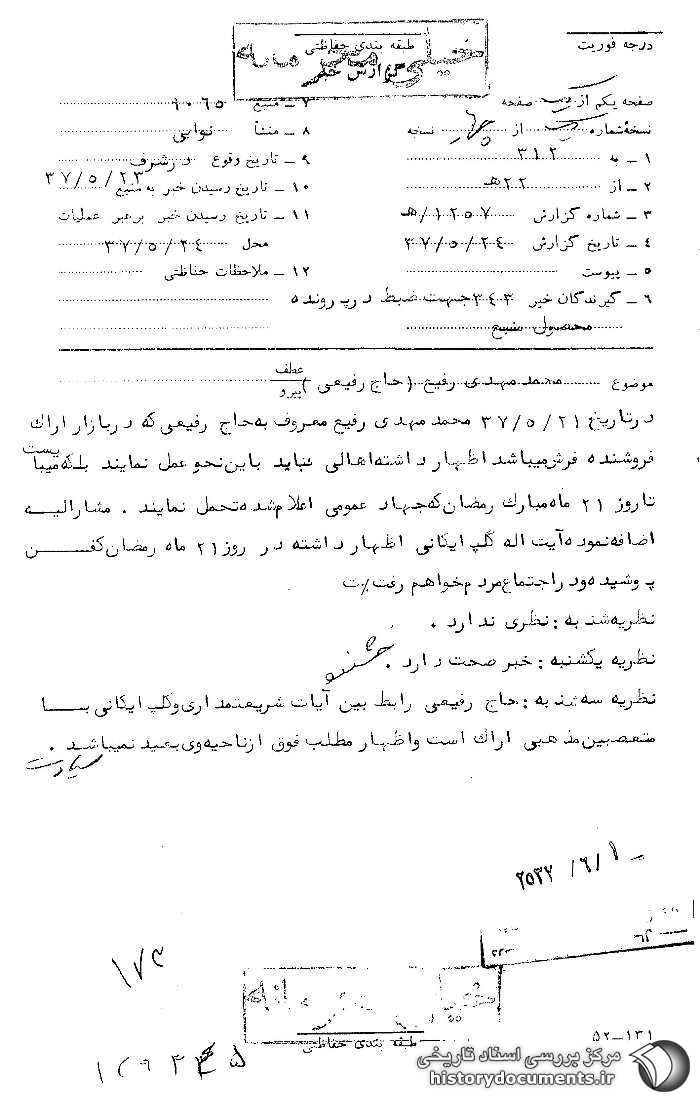 درجه فوریت
طبقه بندی حفاظتی
خیلی محرمانه
گزارش خبر
صفحه یکم از یک صفحه
نسخه شماره یک از چهار نسخه
۱ ـ به ۳۱۲
۲ ـ از ۲۲هـ
۳ ـ شماره گزارش ۱۲۵۷/هـ
۴ ـ تاریخ گزارش ۳۷/۵/۲۴
۵ ـ پیوست
۶ ـ گیرندگان خبر ۳۴۳ جهت ضبط در پرونده
محصول منبع
۷ ـ منبع ۹۰۶۵
۸ ـ منشأ نوابی
۹ ـ تاریخ وقوع درشرف
۱۰ ـ تاریخ رسیدن خبر به منبع ۳۷/۵/۲۳
۱۱ ـ تاریخ رسیدن خبر برهبر عملیات
محل ۳۷/۵/۲۴
۱۲ ـ ملاحظات حفاظتی
موضوع محمد مهدی رفیع (حاج رفیعی) عطف
پیرو
درتاریخ ۳۷/۵/۲۱ محمد مهدی رفیع معروف به حاج رفیعی که دربازار اراک
فروشنده فرش میباشد اظهار داشته اهالی نباید باین نحو عمل نمایند بلکه میبایست
تا روز ۲۱ ماه مبارک رمضان که جهاد عمومی اعلام شده تحمل نمایند . مشارالیه
اضافه نموده آیت اله گلپایگانی اظهار داشته در روز ۲۱ ماه رمضان کفن
پوشیده و در اجتماع مردم خواهم رفت
نظریه شنبه : نظری ندارد .
نظریه یکشنبه : خبر صحت دارد .
نظریه سه شنبه : حاج رفیعی رابط بین آیات شریعتمداری و گلپایگانی با
متعصبین مذهبی اراک است و اظهار مطلب فوق از ناحیه وی بعید نمیباشد .
۲۵۳۷/۶/۱
۱۷۳
خیلی محرمانه
طبقه بندی حفاظتی
۵۲ـ۱۳۱
مرکز بررسی اسناد تاریخی
historydocuments.ir